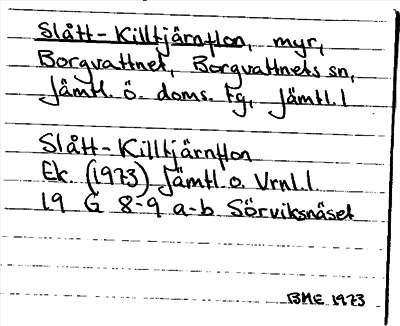 Slått-Killtjärnflon, myr,
Borgvattnet, Borgvattnets sn,
Jämtl. ö. doms. fg, Jämtl. l
Slått-Killtjärnflon
Ek. (1973) Jämtl. o. Vrnl. l
19 G 8-9 a-b Sörviksnäset
BME 1973